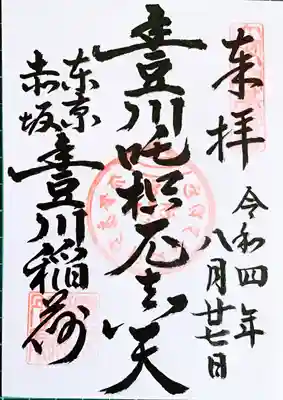 来拝
令和四年
八月廿七日
豊川吒枳尼真天
東京
赤坂
豊川稲荷